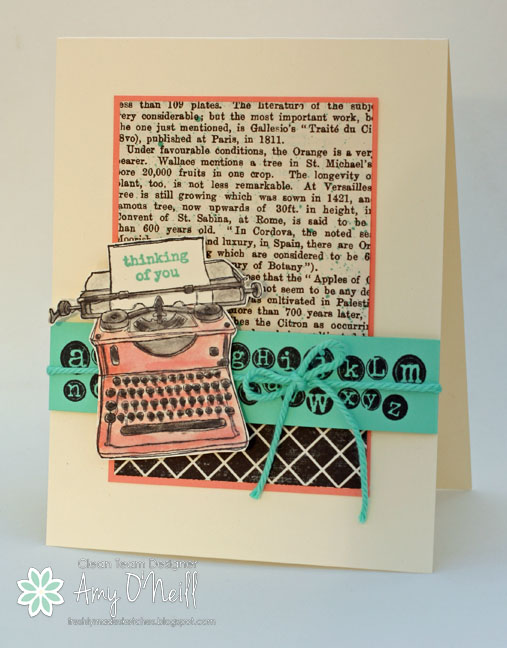 ess than 109 plates. The literature of the subj
very considerable; but the most important work, b
he one just mentioned, is Gallesio's "Traité du Ci
8vo), published at Paris, in 1811.
Under favourable conditions, the Orange is a very
bearer. Wallace mentions a tree in St. Michael's
bore 20,000 fruits in one crop. The longevity o
plant, too, is not less remarkable. At Versailles
tree is still growing which was sown in 1421, an
amous tree, now upwards of 30ft. in height, in
convent of St. Sabina, at Rome, is said to be
than 600 years old. "In Cordova, the noted se
Moorish and luxury, in Spain, there are Or
which are considered to be 6
ury of Botany").
ose that the "Apples of
not seem to be any de
as cultivated in Palesti
more than 700 years later,
ches the Citron as occurrin
thinking
of you
a g h i k l m
n w x y z
Clean Team Designer
Amy O'Neill
freshlymadesketches.blogspot.com